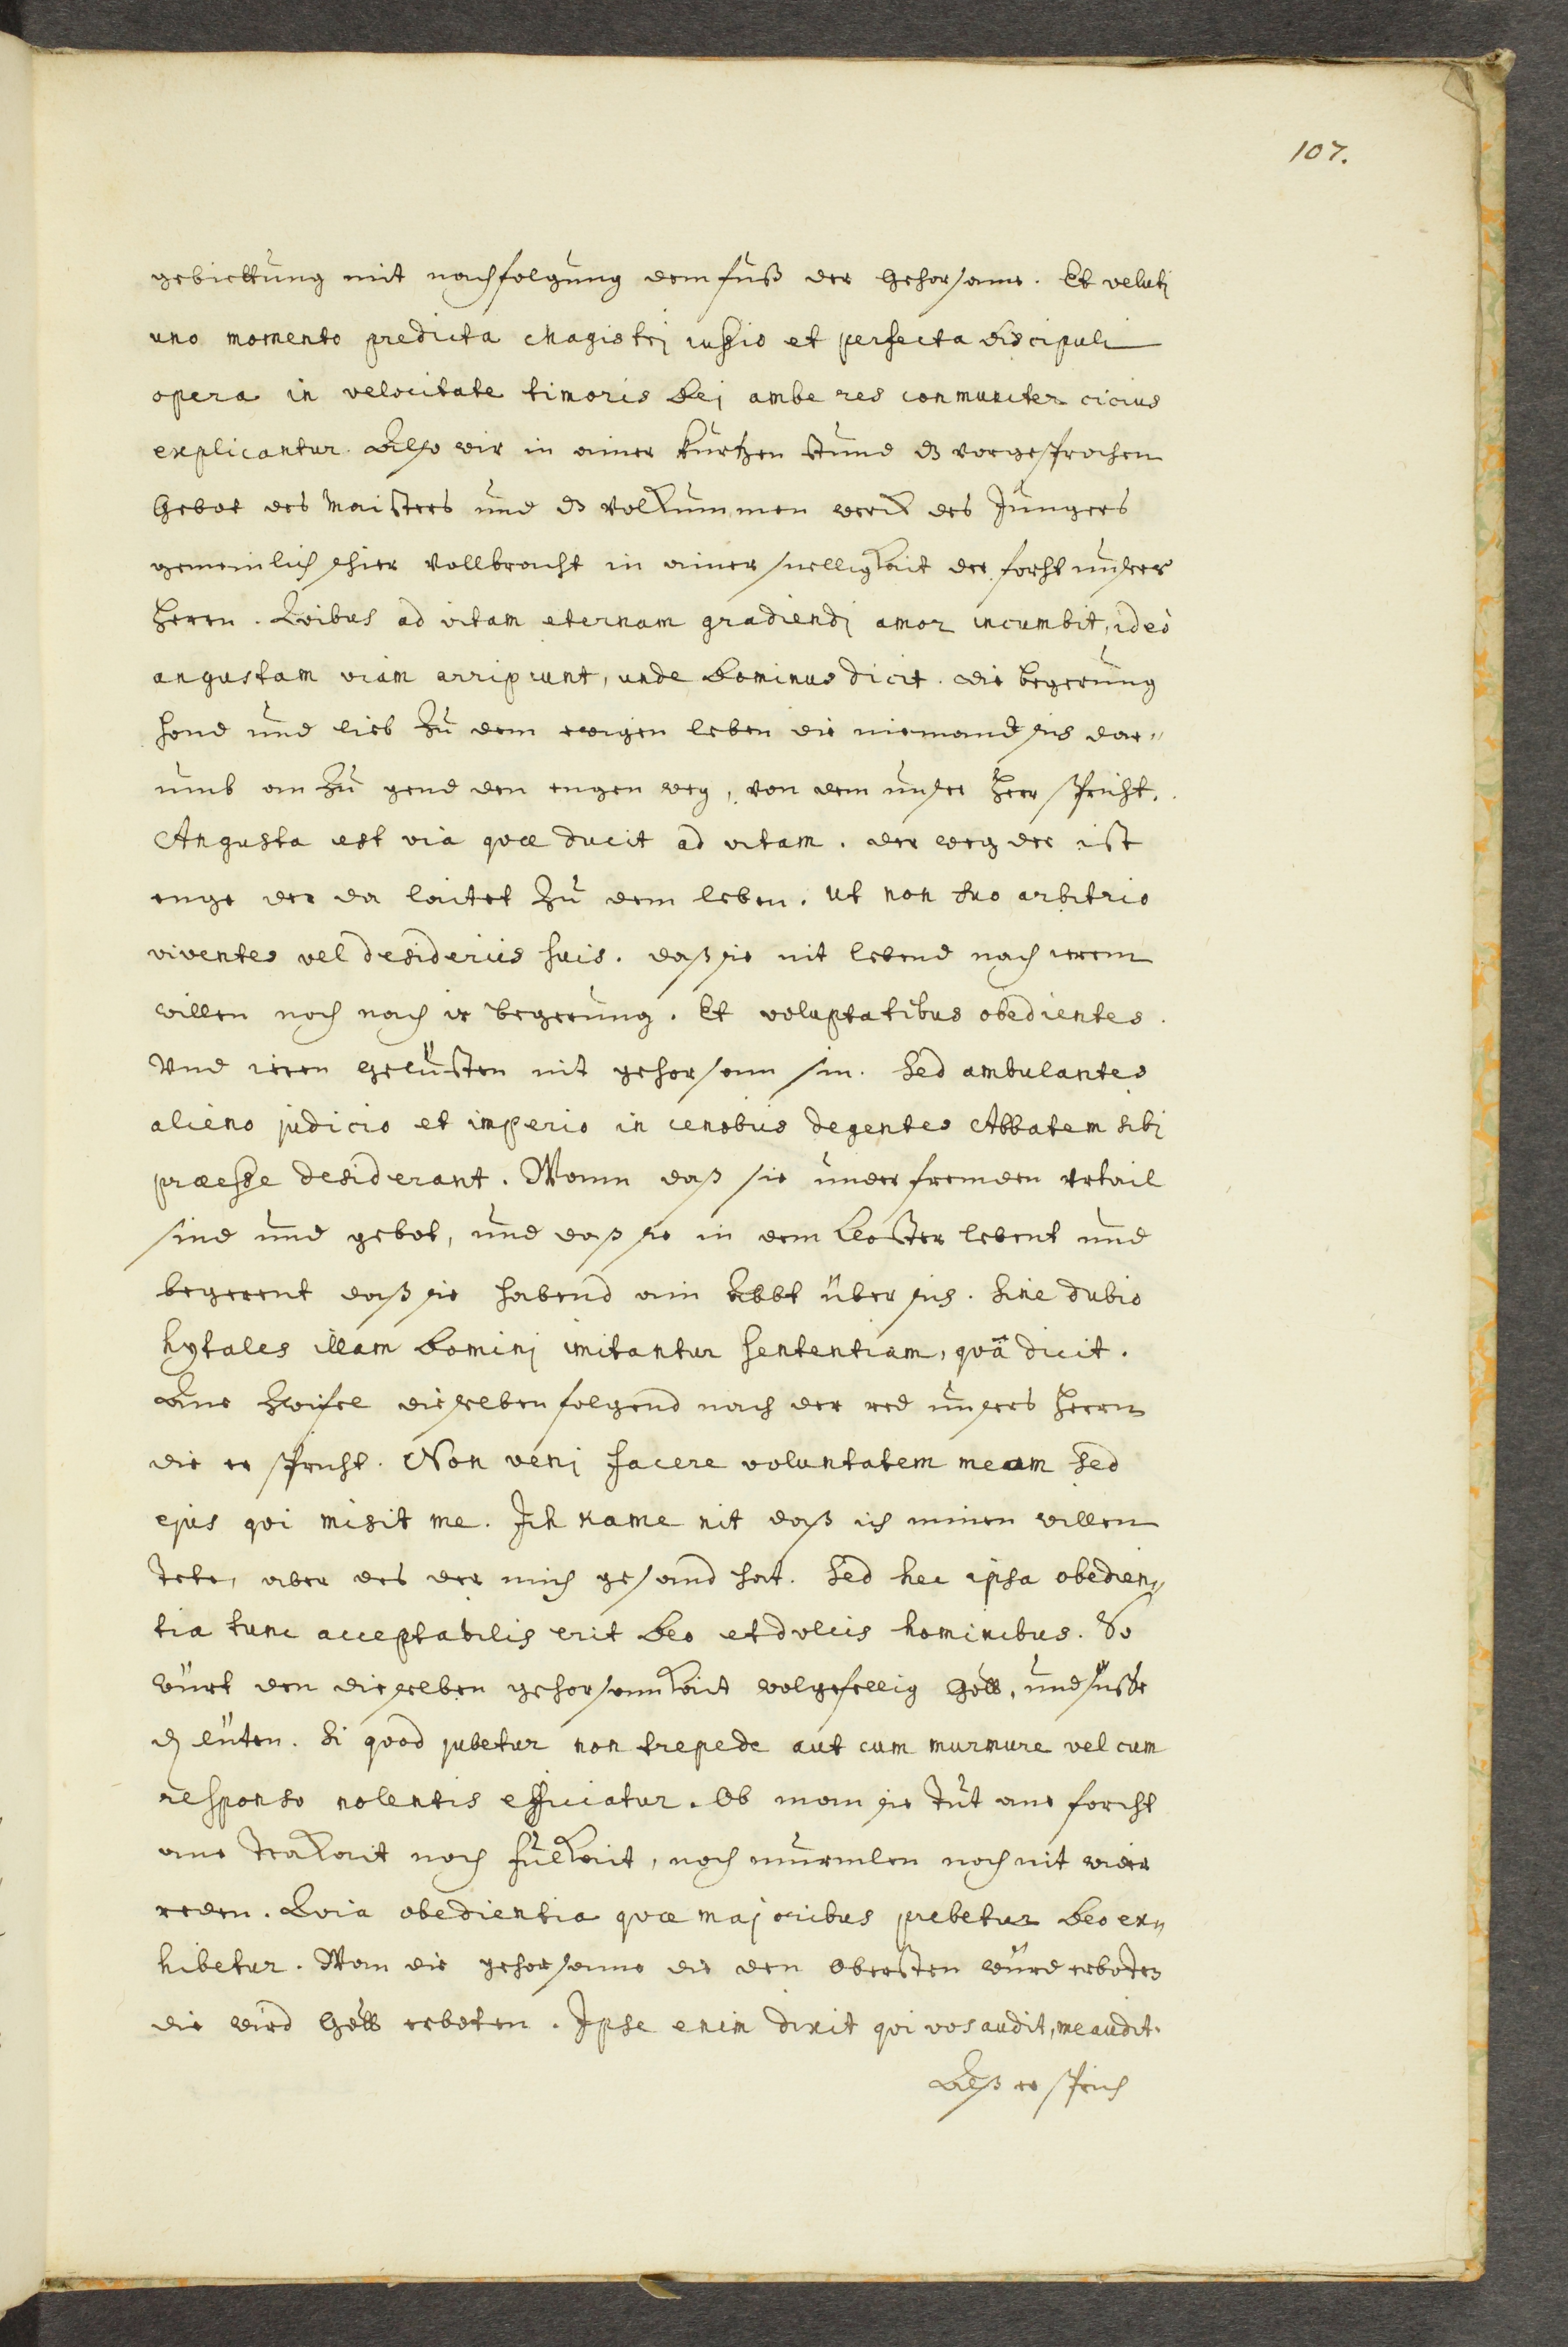 107.
gebiettung mit nachfolgung dem fuß der Gehorsame. Et velutj
uno momento predicta Magistrj iussio et perfecta Discipuli
opera in velocitate timoris Dej ambe res conmuniter cicius
explicantur. Also wir in ainer kurtzen stund dz vorgesprochen
Gebot des Maisters und dz volkummen werck des Jungers
gemeinlich schier vollbracht in ainer snelligkait der forht unsers
Herrn. Qvibus ad vitam eternam gradiendj amor incumbit, ideò
angustam viam arripiunt, unde Dominus dicit. die begerung
hand und lieb zu dem ewigen leben die niemand sis dar„
umb an zu gend den engen weg, von dem unser Herr spricht.
Angusta est via qvæ ducit ad vitam. der weg der ist
enge der da laitet zu dem leben. Ut non suo arbitrio
viventes vel desideriis suis. daß sie nit lebend nach irem
willen noch nach ir begerung. Et voluptatibus obedientes.
Vnd iren gelüsten nit gehorsam sin. Sed ambulantes
alieno judicio et imperio in cenobiis degentes Abbatem sibj
præesse desiderant. Wann daß sie under fremden Vrtail
sind und gebot, und daß sie in dem Closter lebent und
begerent daß sie habend ain Abbt über sis. Sine dubio
hytales illam Dominj imitantur sententiam, qvä dicit.
Ane Zwifel dieselben folgend nach der red unsers Herrn
die er spricht. Non venj facere voluntatem meam sed
ejus qvi misit me. Ich kame nit daß ich minen willen
tete, aber des der mich gesand hat. Sed hec ipsa obedien„
tia tunc acceptabilis erit Deo et dulcis hominibus. So
würt den dieselben gehorsamkait wolgefellig Gott, und süsse
dn lüten. Si qvod jubetur non trepede aut cum murmure vel cum
responso nolentis efficiatur. Ob man sie tut ane forcht
ane trakait noch fulkait, noch murmlen noch nit wider
reden. Qvia obedientia qvæ majoribus prebetur Deo ex„
hibetur. Wan die gehorsame die den obersten würd erboten
die wird Gott erboten. Ipse enim dixit qvi vos audit, me audit.
Alß er sprich